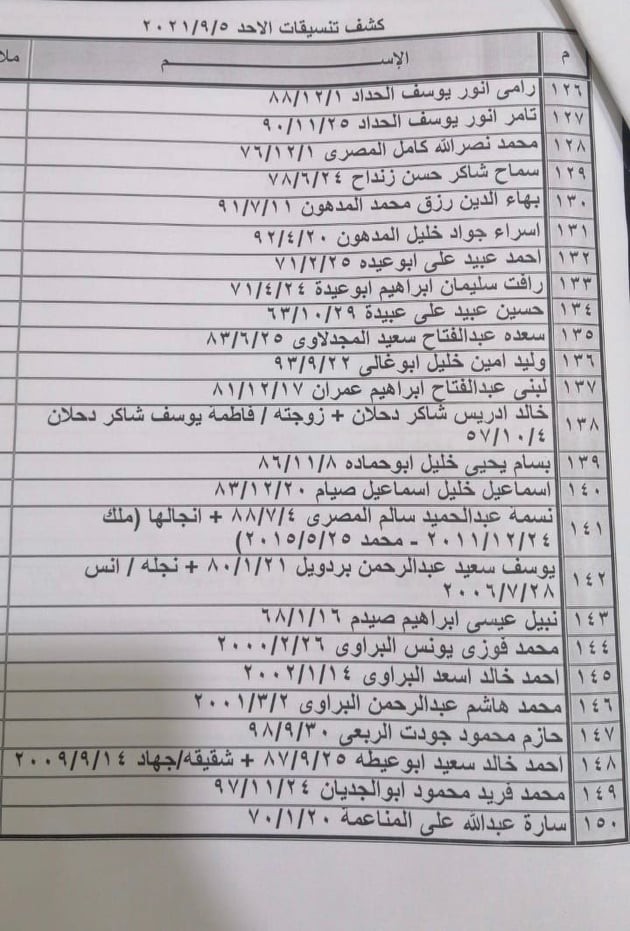 كشف تنسيقات الاحد ٢٠٢١/٩/٥
م الإســــــــــم ملا
١٢٦ رامى انور يوسف الحداد ٨٨/١٢/١
١٢٧ تامر انور يوسف الحداد ٩٠/١١/٢٥
١٢٨ محمد نصرالله كامل المصرى ٧٦/١٢/١
١٢٩ سماح شاكر حسن زنداح ٧٨/٦/٢٤
١٣٠ بهاء الدين رزق محمد المدهون ٩١/٧/١١
١٣١ اسراء جواد خليل المدهون ٩٢/٤/٢٠
١٣٢ احمد عبيد على ابوعيده ٧١/٢/٢٥
١٣٣ رافت سليمان ابراهيم ابوعيدة ٧١/٤/٢٤
١٣٤ حسين عبيد على عبيدة ٦٣/١٠/٢٩
١٣٥ سعده عبدالفتاح سعيد المجدلاوى ٨٣/٦/٢٥
١٣٦ وليد امين خليل ابوغالى ٩٣/٩/٢٢
١٣٧ لبنى عبدالفتاح ابراهيم عمران ٨١/١٢/١٧
١٣٨ خالد ادريس شاكر دحلان + زوجته / فاطمة يوسف شاكر دحلان
٥٧/١٠/٤
١٣٩ بسام يحيى خليل ابوحماده ٨٦/١١/٨
١٤٠ اسماعيل خليل اسماعيل صيام ٨٣/١٢/٢٠
١٤١ نسمة عبدالحميد سالم المصرى ٨٨/٧/٤ + انجالها (ملك
٢٠١١/١٢/٢٤ - محمد ٢٠١٥/٥/٢٥)
١٤٢ يوسف سعيد عبدالرحمن بردويل ٨٠/١/٢١ + نجله / انس
٢٠٠٦/٧/٢٨
١٤٣ نبيل عيسى ابراهيم صيدم ٦٨/١/١٦
١٤٤ محمد فوزى يونس البراوى ٢٠٠٠/٢/٢٦
١٤٥ احمد خالد اسعد البراوى ٢٠٠٢/١/١٤
١٤٦ محمد هاشم عبدالرحمن البراوى ٢٠٠١/٣/٢
١٤٧ حازم محمود جودت الربعى ٩٨/٩/٣٠
١٤٨ احمد خالد سعيد ابوعيطه ٨٧/٩/٢٥ + شقيقه/جهاد ٢٠٠٩/٩/١٤
١٤٩ محمد فريد محمود ابوالجديان ٩٧/١١/٢٤
١٥٠ سارة عبدالله على المناعمة ٧٠/١/٢٠